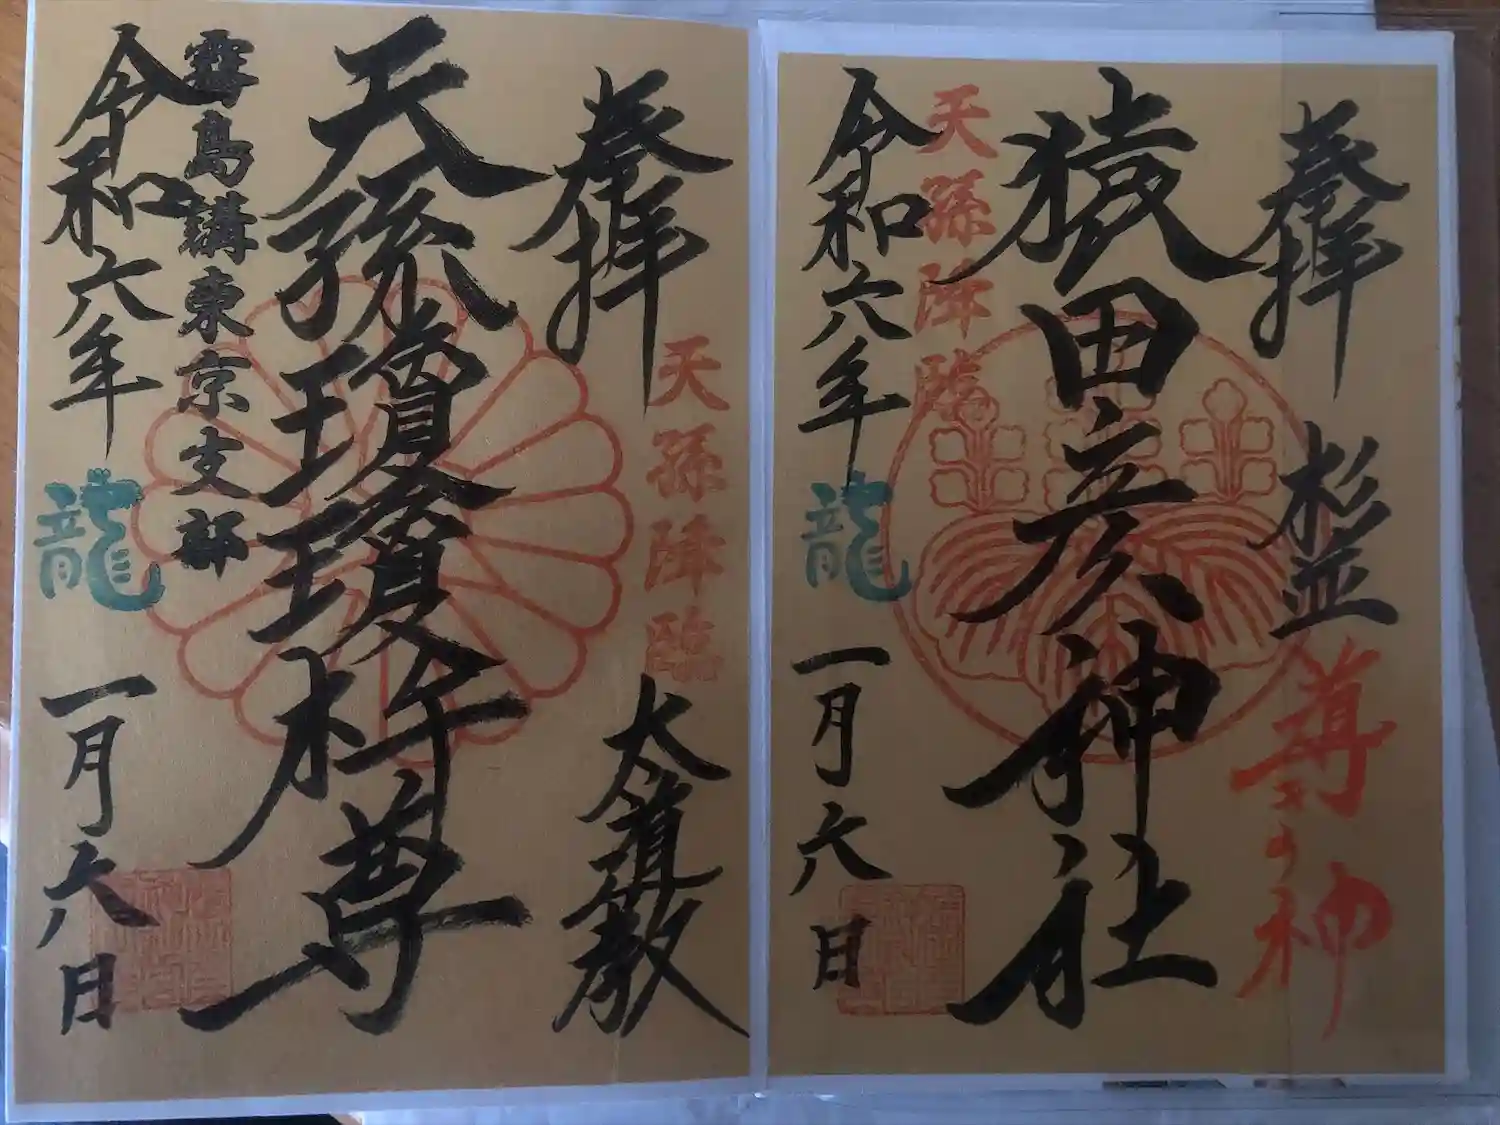 奉拝
杉並
尊
神
猿田彦神社
天孫降臨
令和六年
龍
一月六日
奉拝
天孫降臨
大道教
天孫瓊瓊杵尊
霧島講東京支部
令和六年
龍
一月六日